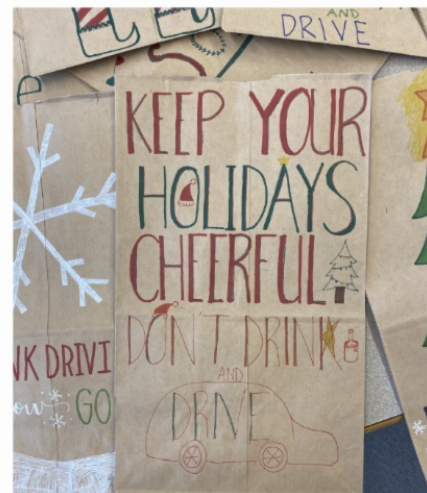 AND
DRIVE
KEEP YOUR
HOLIDAYS
CHEERFUL
DON'T DRINK
AND
DRIVE
NK DRIVI
ow
GO